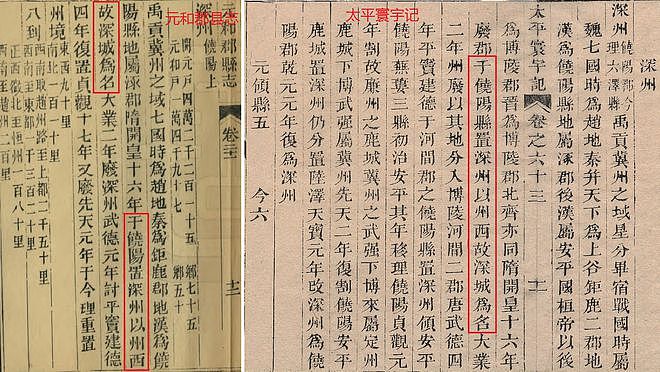 元和郡县志
深州 饒陽上
開元戶四萬二千二百一十五 鄉七十五
元和戶一萬四千九十七 鄉五十
禹貢冀州之域七國時爲趙地秦爲鉅鹿郡地漢爲饒
陽縣地屬涿郡隋開皇十六年于饒陽置深州以州西
故深城爲名大業二年廢深州武德元年討平竇建德
四年復置貞觀十七年又廢先天元年于今理重置
州境 東西九十里
南北一百里
八到 西南取趙州路至上都二千五十里
太平寰宇记
深州 饒陽郡今理陸澤縣 禹貢冀州之域星分畢宿戰國時屬
魏七國時爲趙地秦并天下爲上谷鉅鹿二郡地
漢爲饒陽縣地屬涿郡後漢屬安平國桓帝以後
太平寰宇記 卷之六十三 十一
爲博陵郡晉爲博陵郡北齊亦同隋開皇十六年
廢郡于饒陽縣置深州以州西故深城爲名大業
二年州廢以其地分入博陵河間二郡唐武德四
年平竇建德于河間郡之饒陽置深州領安平
饒陽蕪蔞三縣初治安平其年移理饒陽貞觀元
年割故廢州之鹿城冀州之武强下博來屬定州
下博武强屬冀州先天二年復割饒陽安平
鹿城置深州仍分置陸澤天寶元年改深州爲饒
陽郡乾元元年復爲深州
元領縣五 今六